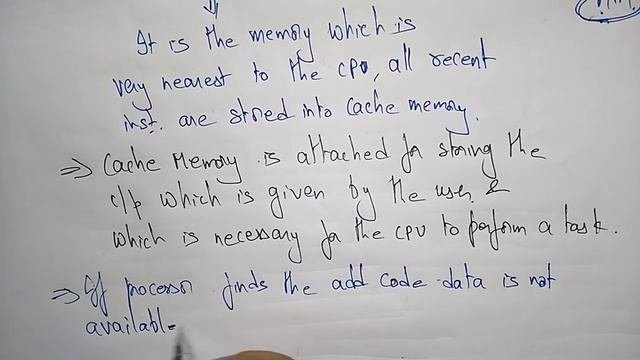 It is the memory which is
very nearest to the CPU, all recent
inst. are stored into Cache memory.
⇒ Cache Memory is attached for storing the
i/p which is given by the user &
which is necessary for the CPU to perform a task.
⇒ If processor finds the add code data is not
available